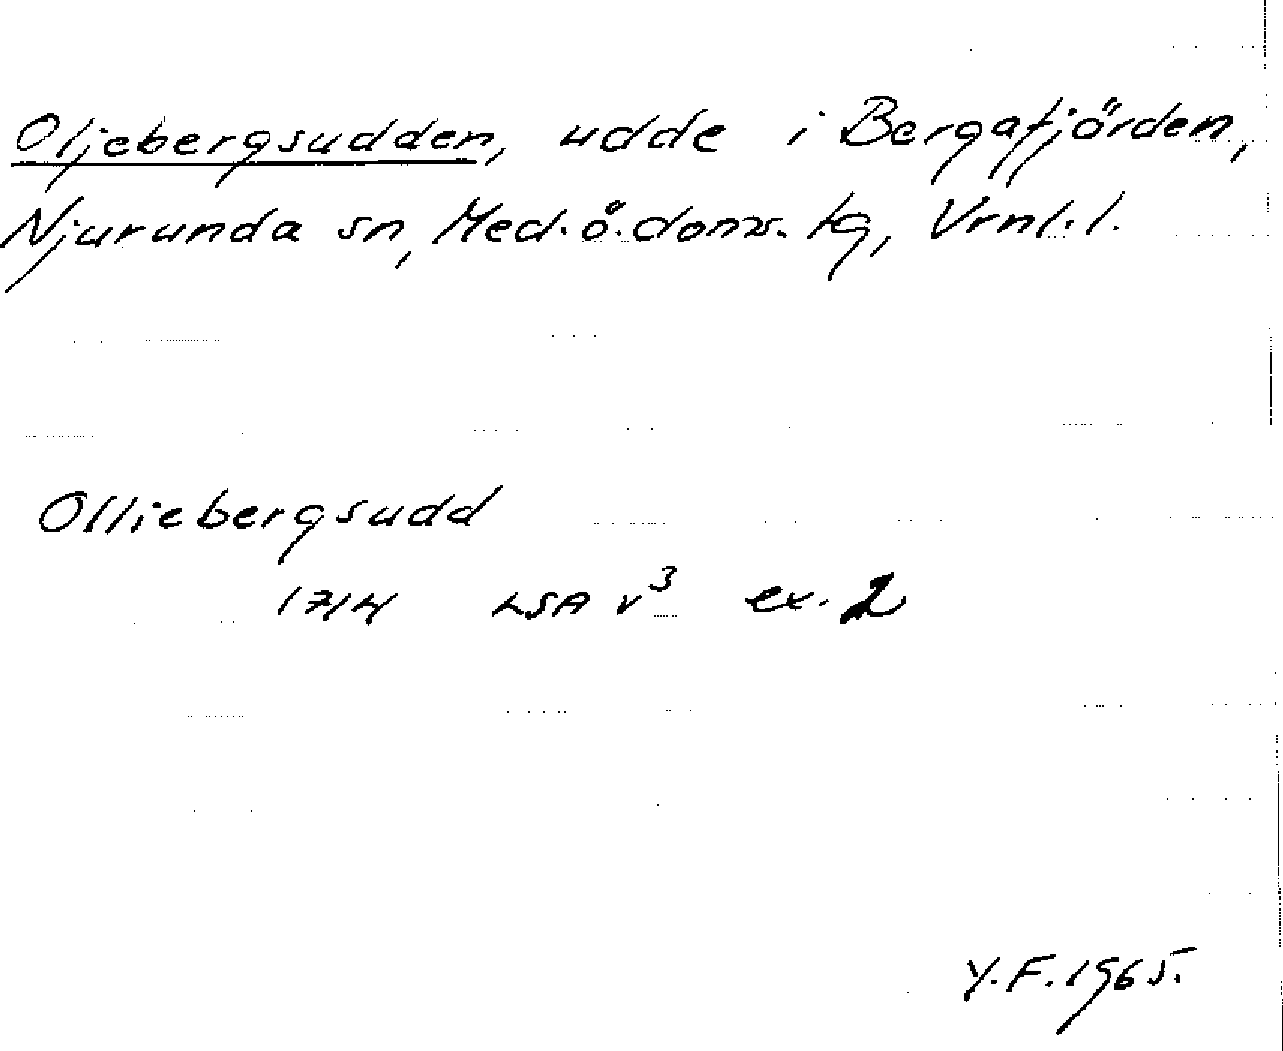 Oljebergsudden, udde i Bergafjörden,
Njurunda sn, Med.ö.doms. tg, Vrnl.l.
Olliebergsudd
1714 LSA V³ ex. 2
Y.F. 1965.